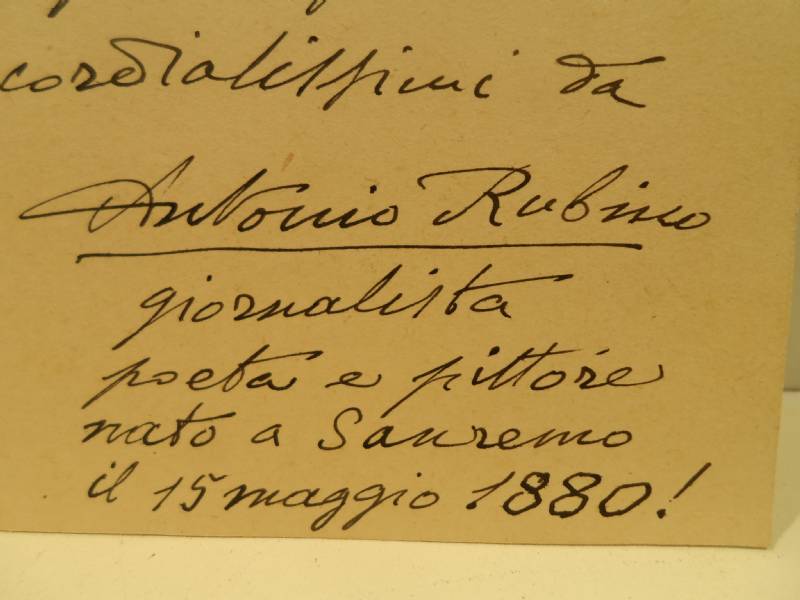 cordialissimi da
Antonio Rubino
giornalista
poeta e pittore
nato a Sanremo
il 15 maggio 1880!